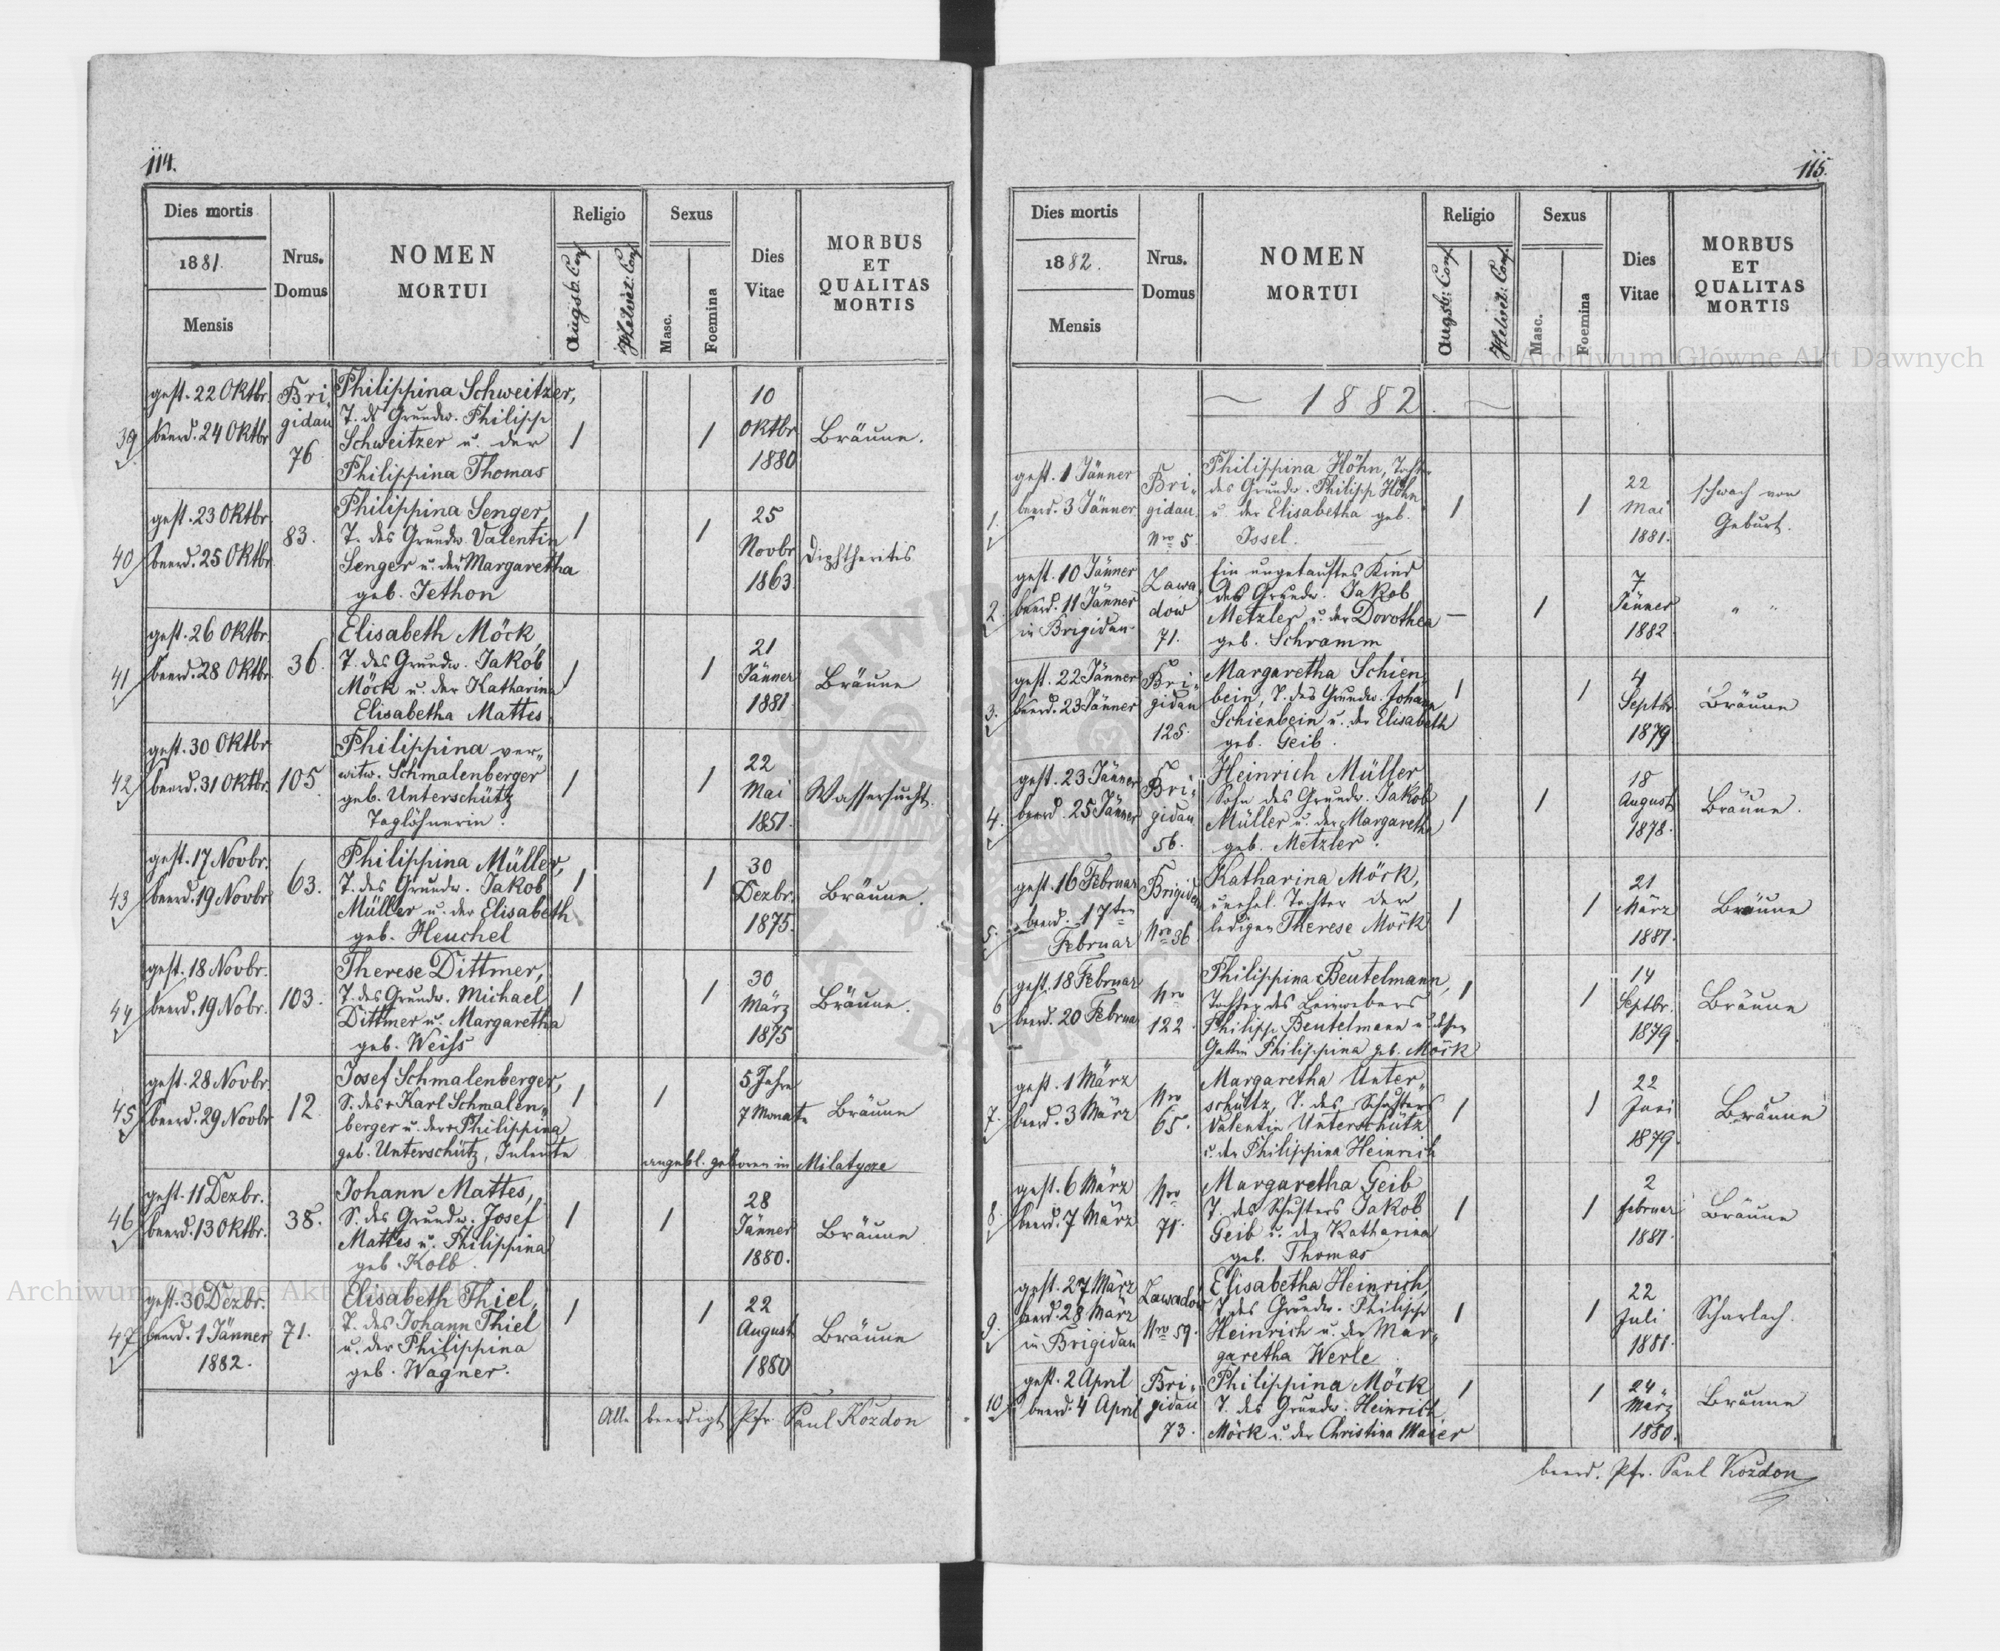 114.
Dies mortis
1881.
Mensis
Nrus.
Domus
NOMEN
MORTUI
Religio
Augsb. Conf.
Helvet. Conf.
Sexus
Masc.
Foemina
Dies
Vitae
MORBUS
ET
QUALITAS
MORTIS
39
gest. 22 Oktbr.
beerd. 24 Oktbr
Bri-
gidau
76.
Philippina Schweitzer,
T. ds Grundw. Philipp
Schweitzer u. der
Philippina Thomas
1
1
10
Oktbr
1880
Bräune.
40
gest. 23 Oktbr
beerd. 25 Oktbr
83.
Philippina Senger
T. des Grundw. Valentin
Senger u. der Margaretha
geb. Jethon
1
1
25
Novbr
1863
Diphtheritis
41
gest. 26 Oktbr.
beerd. 28 Oktbr.
36.
Elisabeth Möck
T. des Grundw. Jakob
Möck u. der Katharina
Elisabetha Mattes
1
1
21
Jänner
1881
Bräune
42
gest. 30 Oktbr
beerd. 31 Oktbr.
105
Philippina ver-
witw. Schmalenberger
geb. Unterschütz
Taglöhnerin.
1
1
22
Mai
1851.
Wassersucht.
43
gest. 17 Novbr.
beerd. 19 Novbr
63.
Philippina Müller,
T. des Grundw. Jakob
Müller u. der Elisabeth
geb. Heuchel
1
1
30
Dezbr.
1875.
Bräune.
44
gest. 18 Novbr.
beerd. 19 Nobr.
103.
Therese Dittmer,
T. des Grundw. Michael
Dittmer u. Margaretha
geb. Weiss
1
1
30
März
1875
Bräune.
45
gest. 28 Novbr
beerd. 29 Novbr
12.
Josef Schmalenberger,
S. des + Karl Schmalen-
berger u. der + Philippina
geb. Unterschütz, Inleute
1
1
5 Jahre
7 Monate
Bräune
angebl. geboren in Milatycze
46
gest. 11 Dezbr.
beerd. 13 Oktbr.
38.
Johann Mattes,
S. des Grundw. Josef
Mattes u. Philippina
geb. Kolb.
1
1
28
Jänner
1880.
Bräune
47
gest. 30 Dezbr.
beerd. 1 Jänner
1882.
71.
Elisabeth Thiel,
T. des Johann Thiel
u. der Philippina
geb. Wagner.
1
1
22
August
1880
Bräune
Alle beerdigt Pfr. Paul Kozdon
115.
Dies mortis
1882.
Mensis
Nrus.
Domus
NOMEN
MORTUI
Religio
Augsb. Conf.
Helvet. Conf.
Sexus
Masc.
Foemina
Dies
Vitae
MORBUS
ET
QUALITAS
MORTIS
1882.
1.
gest. 1 Jänner
beerd. 3 Jänner
Bri-
gidau
Nro 5
Philippina Höhn, Tochter
des Grundw. Philipp Höhn
u. der Elisabetha geb.
Issel.
1
1
22
Mai
1881.
schwach von
Geburt.
2.
gest. 10 Jänner
beerd. 11 Jänner
in Brigidau
Zawa
dow
71.
Ein ungetauftes Kind
des Grundw. Jakob
Metzler u. der Dorothea
geb. Schramm
—
1
7
Jänner
1882
" "
3.
gest. 22 Jänner
beerd. 23 Jänner
Bri-
gidau
125.
Margaretha Schien-
bein, T. des Grundw. Johann
Schienbein u. der Elisabeth
geb. Geib.
1
1
4
Septbr.
1879
Bräune
4.
gest. 23 Jänner
beerd. 25 Jänner
Bri-
gidau
56.
Heinrich Müller
Sohn des Grundw. Jakob
Müller u. der Margaretha
geb. Metzler.
1
1
18
August
1878.
Bräune.
5.
gest. 16 Februar
beerd. 17ten
Februar
Brigidau
Nro 36
Katharina Möck,
unehel. Tochter der
ledigen Therese Möck
1
1
21
März
1881.
Bräune
6
gest. 18 Februar
beerd. 20 Februar
Nro
122.
Philippina Beutelmann,
Tochter des Leinwebers
Philipp Beutelmann u. dessen
Gattin Philippina geb. Möck
1
1
14
Septbr.
1879.
Bräune
7.
gest. 1 März
beerd. 3 März
Nro
65.
Margaretha Unter-
schütz, T. des Schusters
Valentin Unterschütz
u. der Philippina Heinrich
1
1
22
Juni
1879.
Bräune
8.
gest. 6 März
beerd. 7 März
Nro
71.
Margaretha Geib
T. des Schusters Jakob
Geib u. der Katharina
geb. Thomas
1
1
2
Februar
1881.
Bräune
9.
gest. 27 März
beerd. 28 März
in Brigidau
Zawadow
Nro 59.
Elisabetha Heinrich,
T. des Grundw. Philipp
Heinrich u. der Mar-
garetha Werle
1
1
22
Juli
1881.
Scharlach.
10
gest. 2 April
beerd. 4 April
Bri-
gidau
73.
Philippina Möck
T. des Grundw. Heinrich
Möck u. der Christina Maier
1
1
24
März
1880.
Bräune
beerd. Pfr. Paul Kozdon
Archiwum Główne Akt Dawnych
Archiwum Główne Akt Dawnych